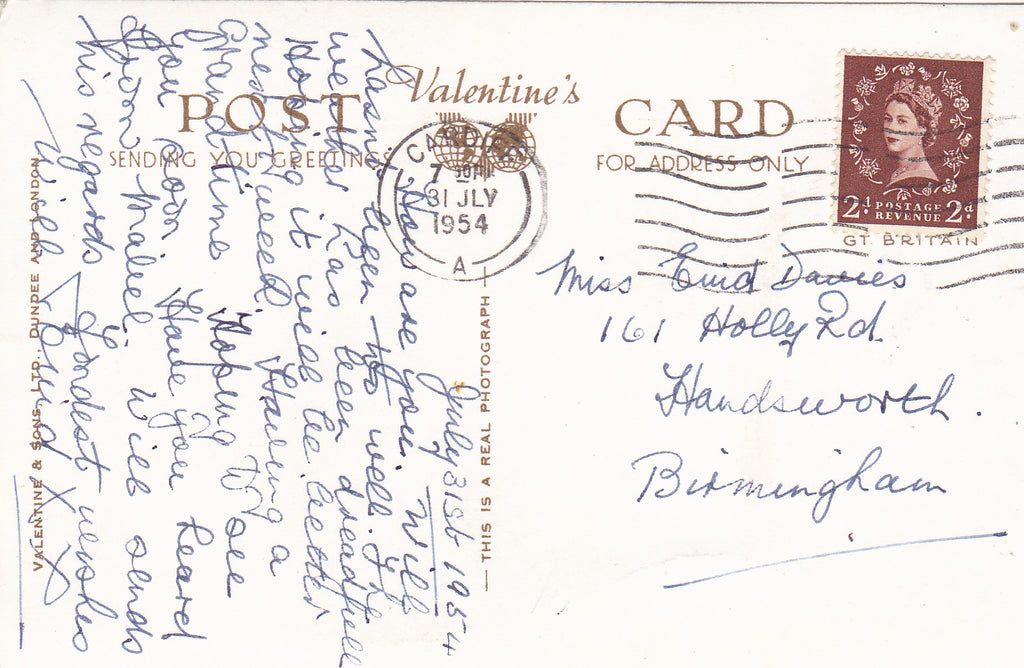 POST Valentine's CARD
SENDING YOU GREETINGS
FOR ADDRESS ONLY
CARDIFF
7 30 PM
31 JLY
1954
A
2d POSTAGE REVENUE 2d
GT. BRITAIN
July 31st 1954
How are you. Will
hasnt been too well, the
weather has been dreadfull
Hoping it will be better
next week. Having a
Grand time Hoping to see
you soon Have you heard
from Mabel. Will sends
his regards Fondest wishes
Will & Enid X X
VALENTINE & SONS, LTD., DUNDEE AND LONDON
— THIS IS A REAL PHOTOGRAPH —
Miss Enid Davies
161 Holly Rd.
Handsworth.
Birmingham